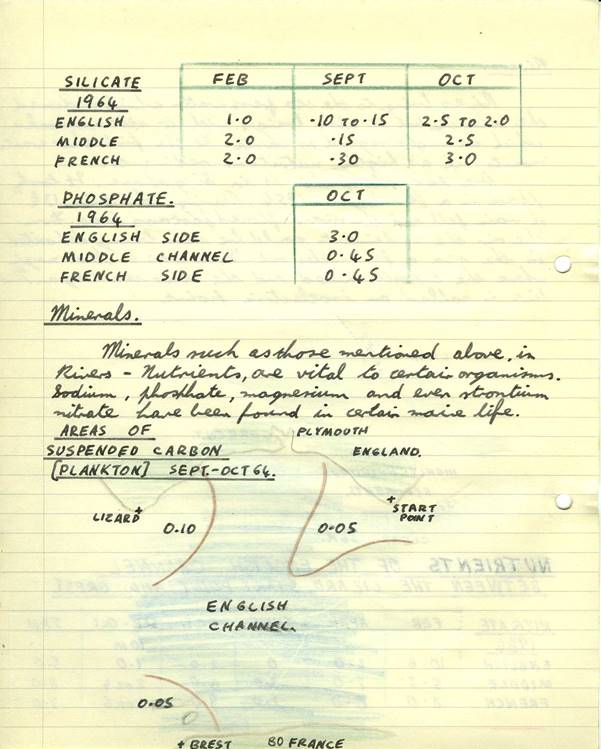 SILICATE FEB SEPT OCT
1964
ENGLISH 1·0 ·10 TO ·15 2·5 TO 2·0
MIDDLE 2·0 ·15 2·5
FRENCH 2·0 ·30 3·0
PHOSPHATE. OCT
1964
ENGLISH SIDE 3·0
MIDDLE CHANNEL 0·45
FRENCH SIDE 0·45
Minerals.
Minerals such as those mentioned above, in
Rivers - Nutrients, are vital to certain organisms.
Sodium, phosphate, magnesium and even strontium
nitrate have been found in certain maine life.
AREAS OF
SUSPENDED CARBON
[PLANKTON] SEPT.-OCT 64.
PLYMOUTH
ENGLAND.
LIZARD +
0.10
0.05
+ START
POINT
ENGLISH
CHANNEL.
0.05
+ BREST 80 FRANCE